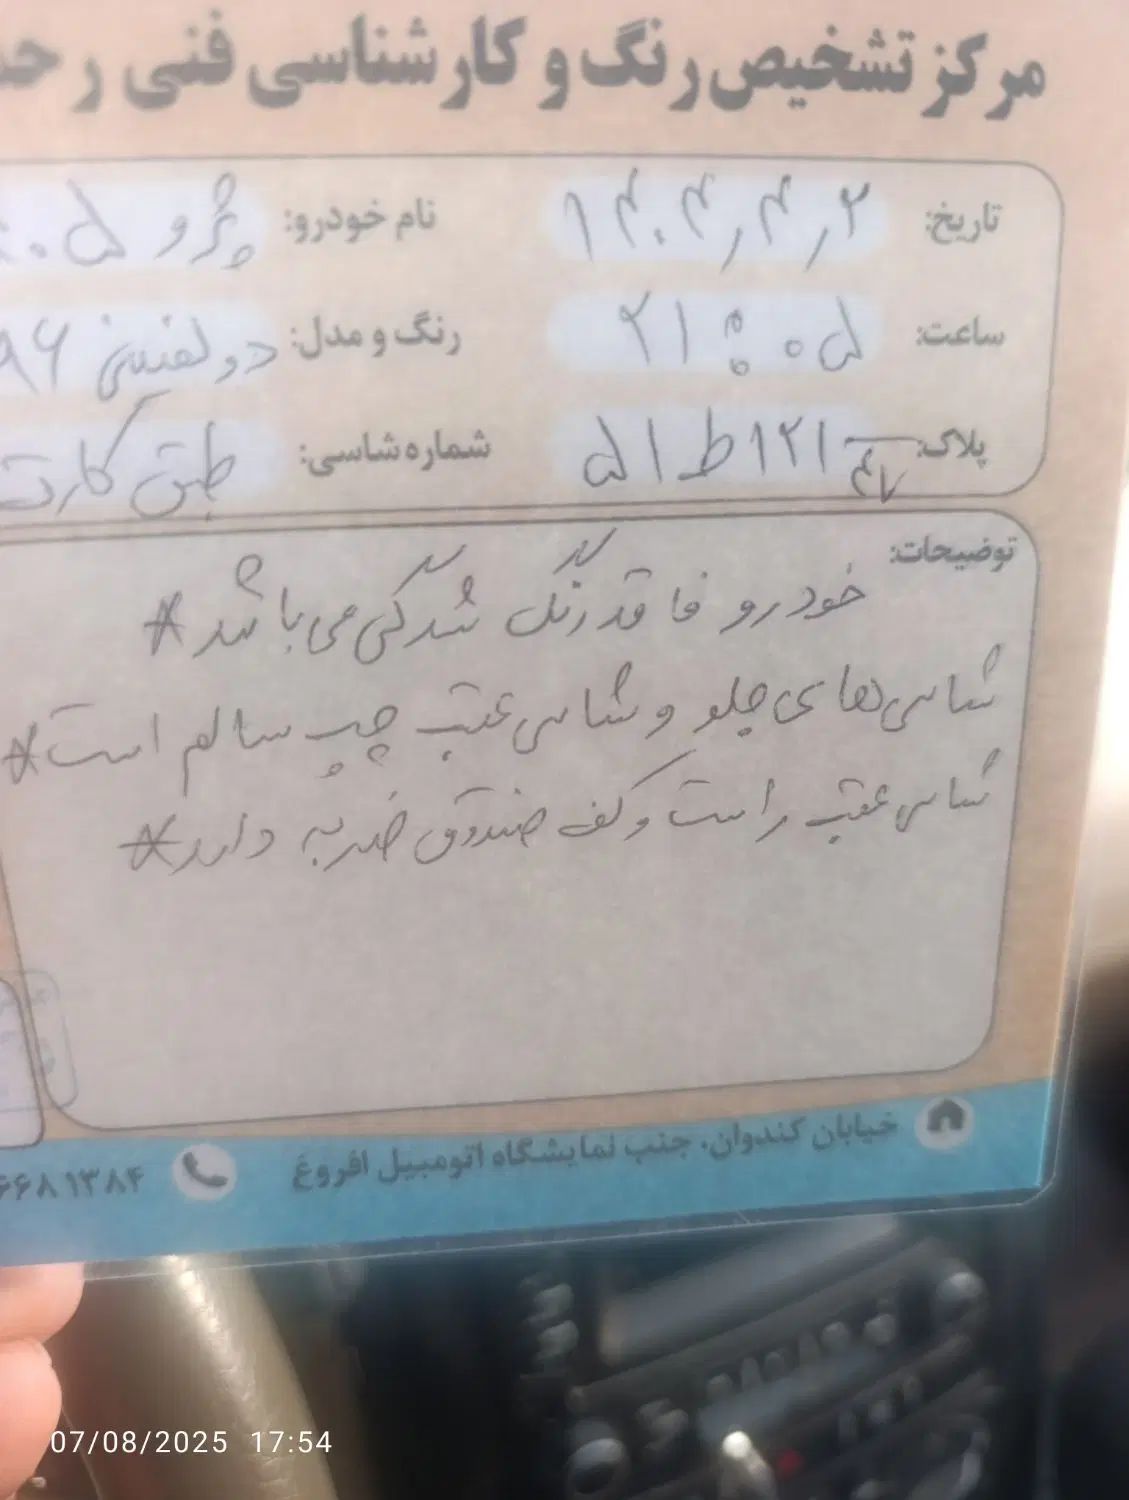 مرکز تشخیص رنگ و کارشناسی فنی
تاریخ: ۱۴۰۴٫۴٫۲ نام خودرو: پژو
ساعت: ۲۱:۰۵ رنگ و مدل: دولفینی ۹۶
پلاک: ۱۲۱ ط ۵۱ شماره شاسی: طبق کارت
توضیحات:
خودرو فاقد رنگ شدگی می باشد*
شاسی های جلو و شاسی عقب چپ سالم است*
شاسی عقب راست و کف صندوق ضربه دارد*
خیابان کندوان، جنب نمایشگاه اتومبیل افروغ
۶۶۸۱۳۸۴
07/08/2025 17:54